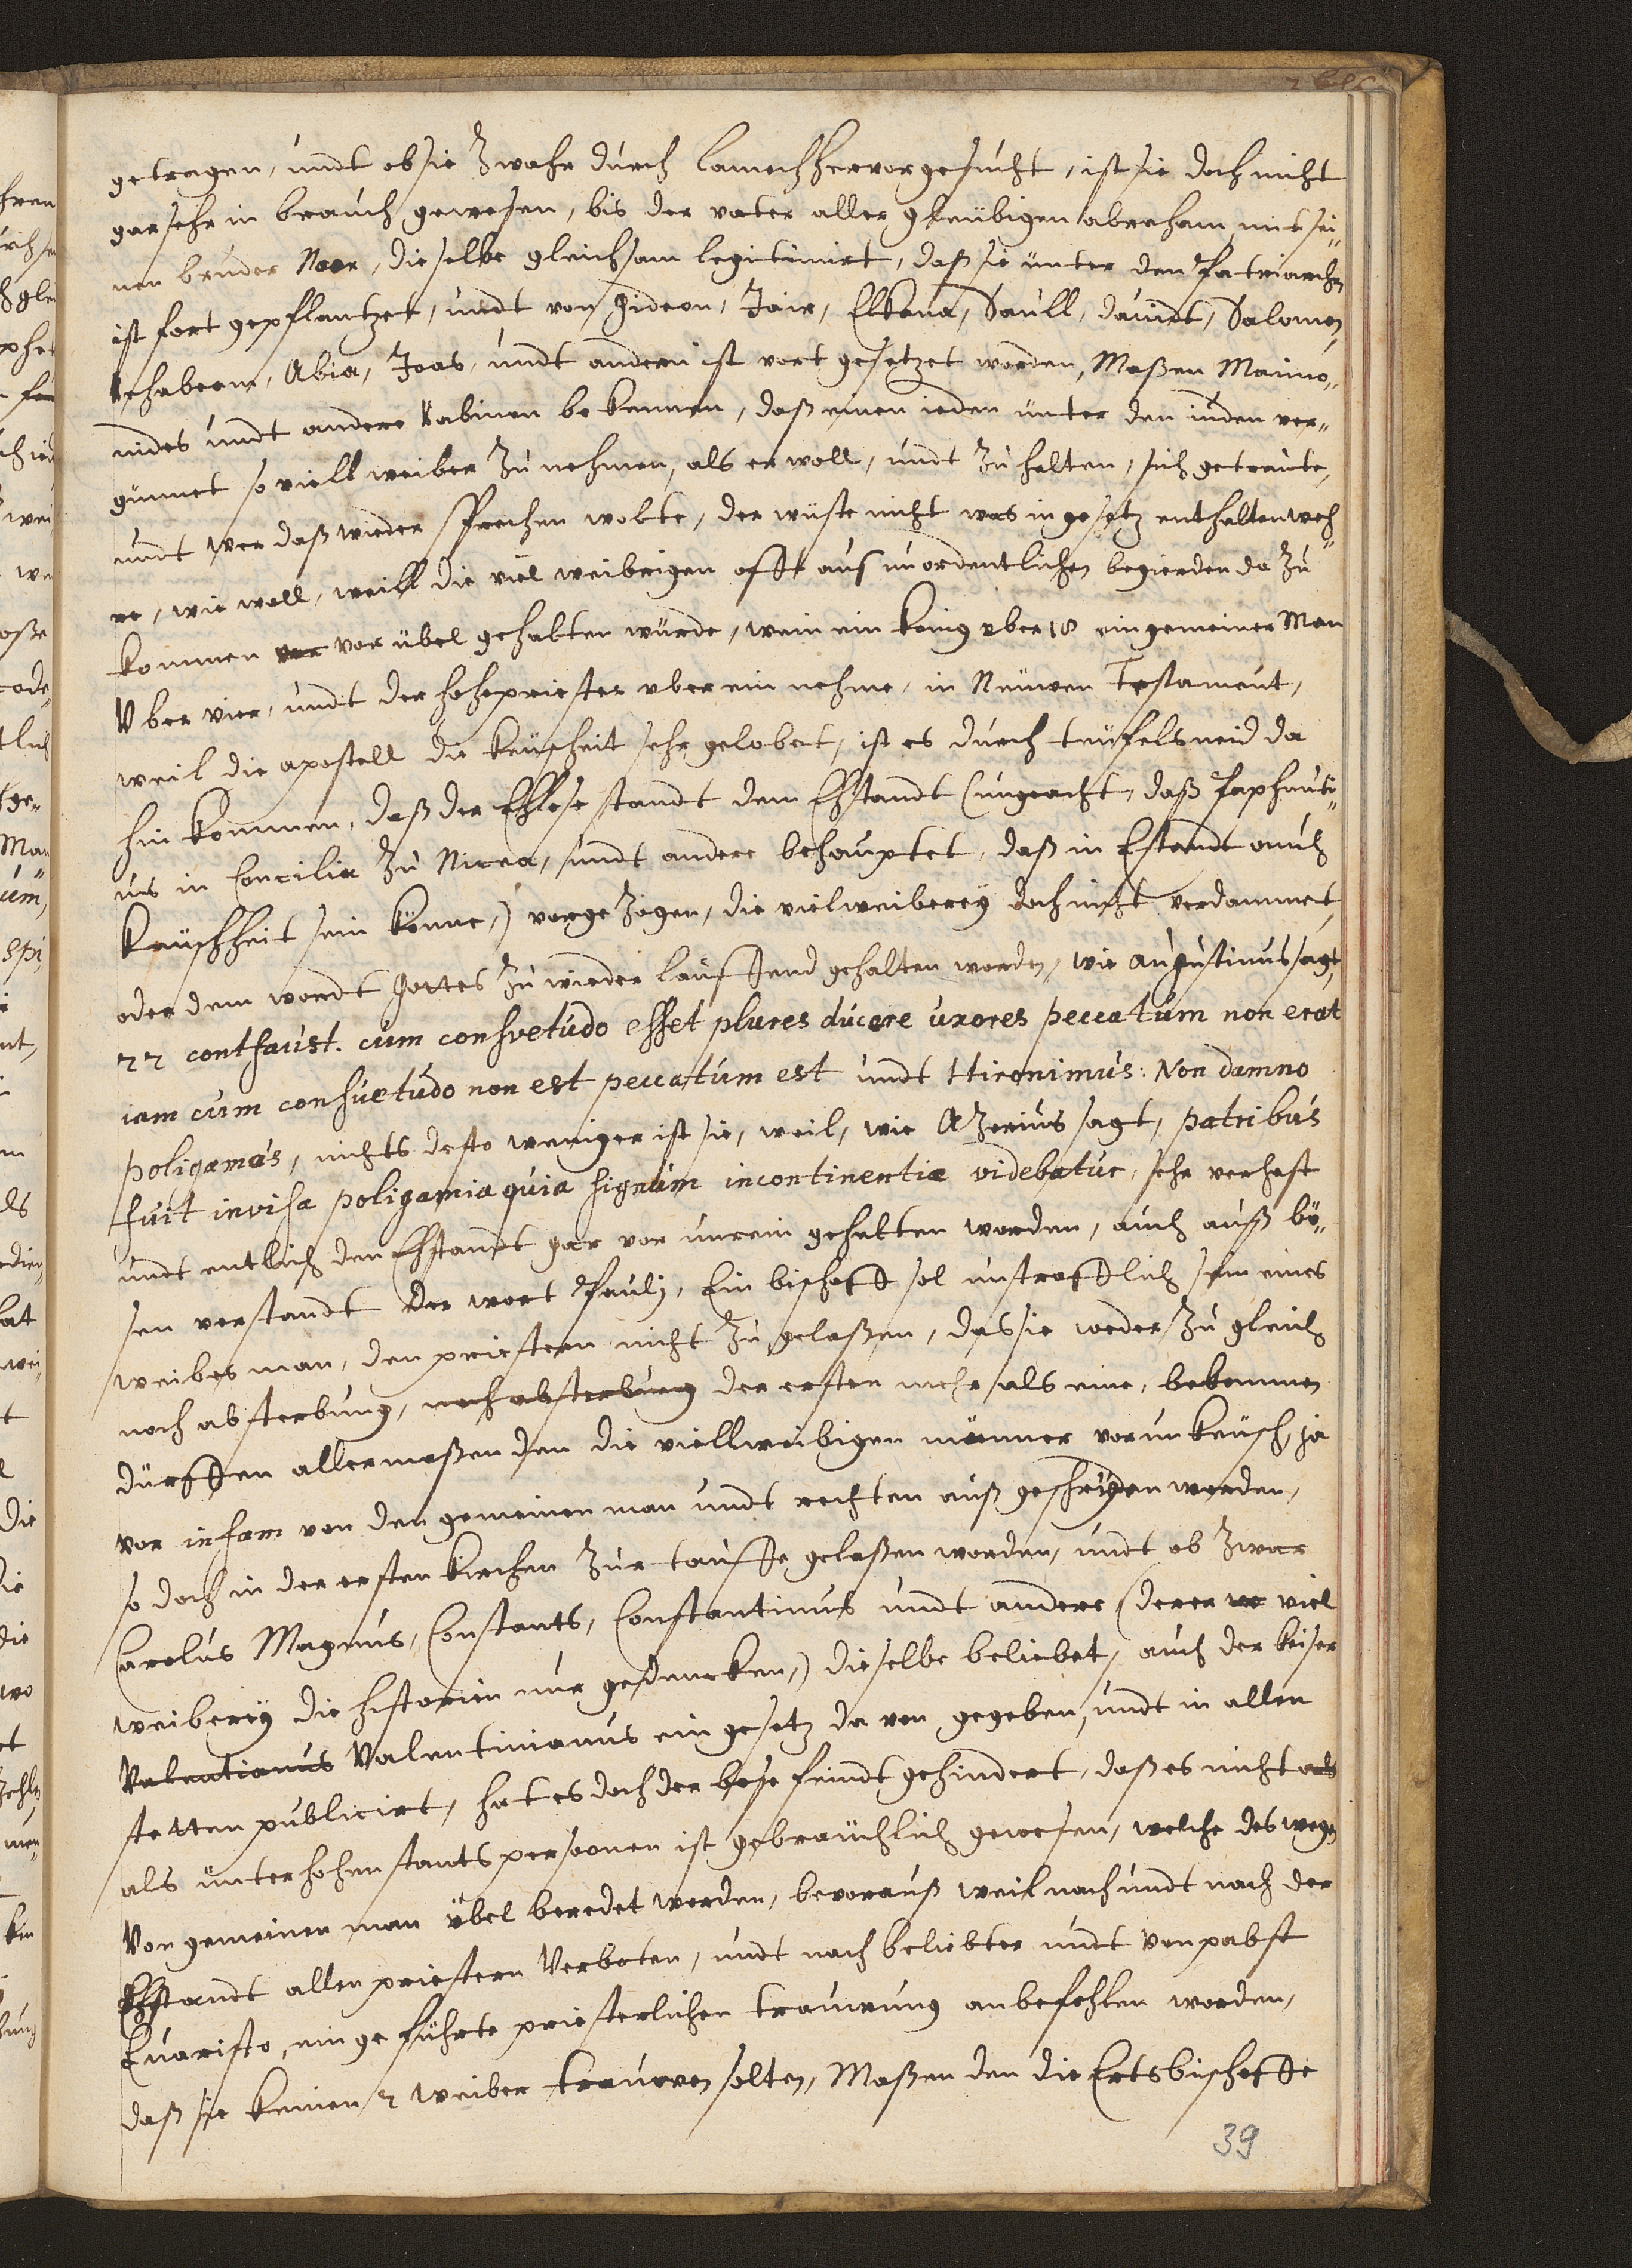 getragen, undt ob sie Zwahr durch lamech hervor gesucht, ist sie doch nicht
gar sehr in brauch gewesen, bis der vater aller gleubigen abraham mit sei„
nen bruder Naor, die selbe gleichsam legitimirt, daß sie unter den Patriarchen
ist fort gepflantzet, undt von Gideon, Jair, Elkana, Saull, davidt, Salomon,
Rehabeam, Abia, Joas, undt andern ist vort gesetzet worden, Maßen Maimo„
nides undt andere Rabinen bekennen, daß einen ieden unter den iuden ver„
günnet so viell weiber Zu nehmen, als er woll, undt Zu halten, sich getraute,
undt wer daß wieder sprechen wolte, der wuste nicht was in gesetz enthalten weh„
re, wie woll, weill die viel weibrigen offt aus unordentlichen begierden da Zu
kommen vor vor übel gehalten würde, wenn ein Konig uber 18 ein gemeiner Man
Uber vier, undt der hohepriester uber ein nehme, in Neüwen Testament,
weil die apostell die keüscheit sehr gelobet, ist es durch teufels neid da
hin kommen, daß der Ehlose standt dem Ehstandt (ungeacht, daß Paphnuti„
us in Concilia Zu Nicea, undt andere behauptet, daß in Estandt auch
Keuschheit sein könne,) vorge Zogen, die vielweiberey doch nicht verdammet,
oder dem wordt Gottes Zu wieder lauffend gehalten worden, wie augustinus sagt,
22 contfaust. cum consvetudo esset plures ducere uxores peccatum non erat
iam cum consuetudo non est peccatum est undt Hironimus: Non damno
poligamos, nichts desto weniger ist sie, weil, wie AZorius sagt, patribus
fuit invisa poligamia quia signum incontinentiæ videbatur, sehr verhast
undt entlich den Ehstandt gar vor unrein gehalten worden, auch auß bö„
sen verstandt der wort Pauli, Ein bischoff sol unstrafflich sein eines
weibes man, den priestern nicht Zu gelaßen, das sie weder Zu gleich
noch absterbung, nach absterbung der ersten mehr als eine, bekommen
dürffen allermaßen den die viellweibigen männer vor unkeusch, ja
vor infam von den gemeinen man undt rechten auß geschrÿen werden,
so doch in der ersten Kirchen Zur tauffe gelaßen worden, undt ob Zwar
Carolus Magnus, Constants, Constantinus undt andere (derer viel
weiberey die historien nur gedencken,) die selbe beliebet, auch der Keiser
Valentianus Valentinianus ein gesetz da von gegeben, undt in allen
stetten publicirt, hat es doch der böse feindt gehindert, daß es nicht als
als unter hohen stants persoonen ist gebräuchlich gewesen, welche deswegen
Von gemeinen man übel beredet werden, bevorauß weil nach undt nach der
Ehstandt allen priestern Verboten, undt nach beliebter undt von pabst
Evaristo, ein geführte priesterlichen trauwung anbefohlen worden,
daß sie keinen 2 weiber trauwen solten, Maßen den die Ertsbischoffe
39